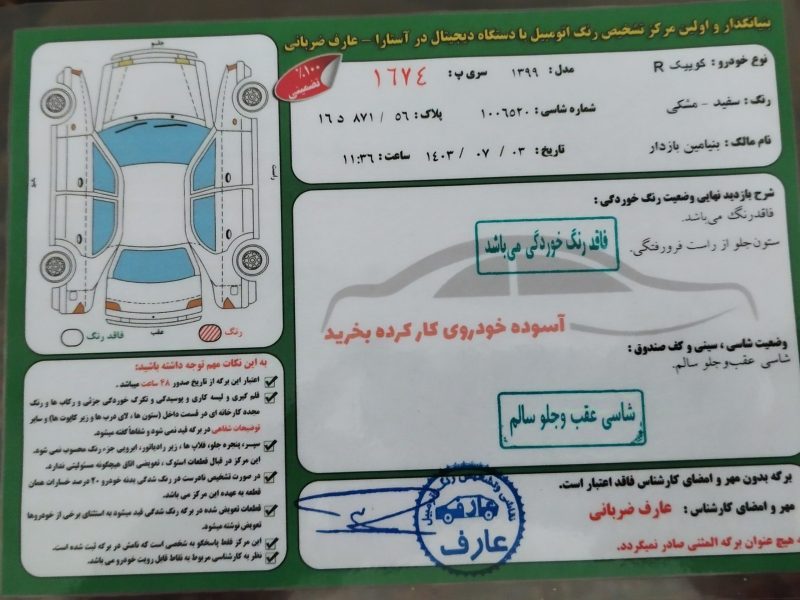 بنیانگذار و اولین مرکز تشخیص رنگ اتومبیل با دستگاه دیجیتال در آستارا - عارف ضربانی
نوع خودرو : کوییک R
مدل : ۱۳۹۹
سری پ : ۱۶۷۴
رنگ : سفید - مشکی
شماره شاسی : ۱۰۰۶۵۲۰
پلاک : ۵۶ / ۸۷۱ د ۱۶
نام مالک : بنیامین بازدار
تاریخ : ۱۴۰۳ / ۰۷ / ۰۳
ساعت : ۱۱:۳۶
۱۰۰٪
تضمینی
جلو
راست
عقب
رنگ
فاقد رنگ
شرح بازدید نهایی وضعیت رنگ خوردگی :
فاقدرنگ می‌باشد.
ستون‌جلو از راست فرورفتگی.
فاقد رنگ خوردگی می باشد
آسوده خودروی کار کرده بخرید
وضعیت شاسی ، سینی و کف صندوق :
شاسی عقب‌وجلو سالم.
شاسی عقب وجلو سالم
به این نکات مهم توجه داشته باشید:
اعتبار این برگه از تاریخ صدور ۴۸ ساعت میباشد .
قلم گیری و لیسه کاری و پوسیدگی و تکرک خوردگی جزئی و رکاب ها و رنگ
مجدد کارخانه ای در قسمت داخل (ستون ها ، لای درب ها و زیر کاپوت ها) و سایر
توضیحات شفاهی در برگه قید نمی شود و شفاها گفته میشود.
سپر، پنجره جلو، قلاب ها ، زیر رادیاتور، ابرویی جزء رنگ محسوب نمی شود.
این مرکز در قبال قطعات استوک ، تعویضی اتاق هیچگونه مسئولیتی ندارد.
در صورت تشخیص نادرست در رنگ شدگی بدنه خودرو ۲۰ درصد خسارات همان
قطعه به عهده این مرکز می باشد.
قطعات تعویض شده در برگه رنگ شدگی قید میشود به استثنای برخی از خودروها
تعویض نوشته میشود.
این مرکز فقط پاسخگو به شخصی است که نامش در برگه ثبت شده است.
نظر به کارشناسی مربوط به نقاط قابل رویت خودرو می باشد.
برگه بدون مهر و امضای کارشناس فاقد اعتبار است.
مهر و امضای کارشناس : عارف ضربانی
به هیچ عنوان برگه المثنی صادر نمیگردد.
عارف
عارف